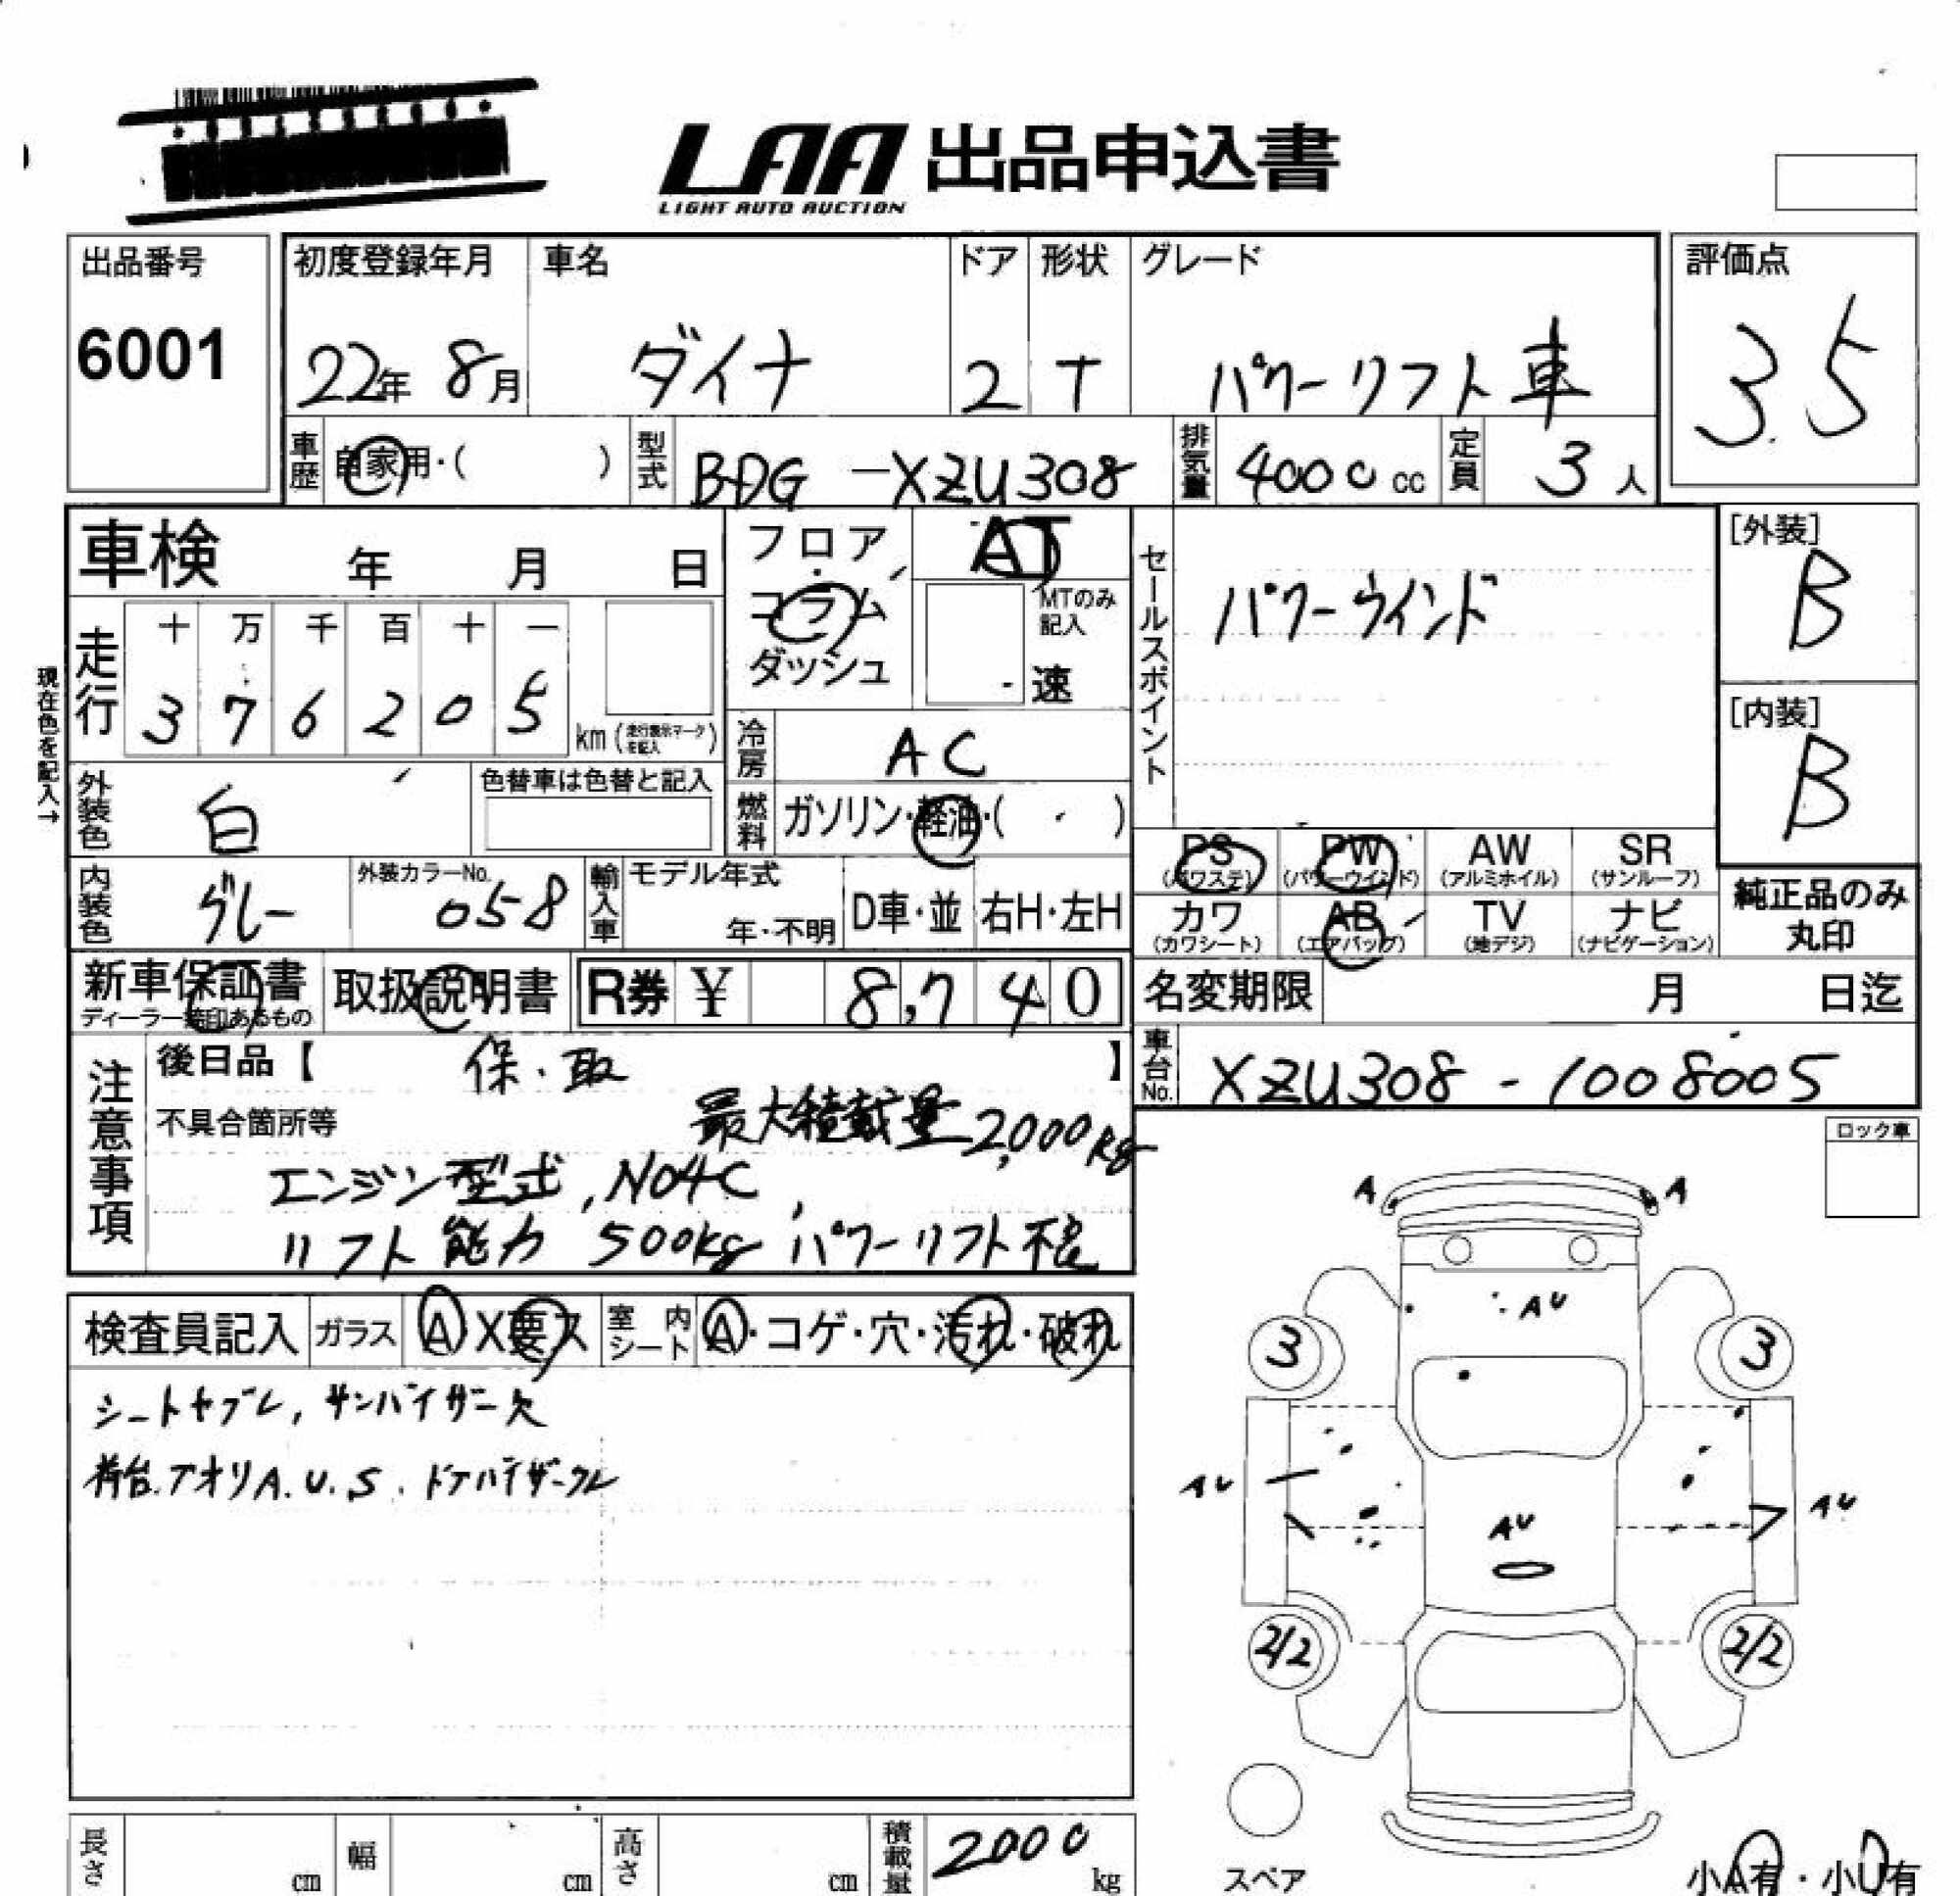 LAA 出品申込書
LIGHT AUTO AUCTION
出品番号
6001
初度登録年月 車名 ドア 形状 グレード
22年 8月 ダイナ 2 T パワーリフト車
評価点
3.5
車歴 自家用・( ) 型式 BDG-XZU308 排気量 4000cc 定員 3人
車検 年 月 日
フロア・コラム・ダッシュ
AT
MTのみ記入
速
走行 十 万 千 百 十 一
3 7 6 2 0 5 km(走行表示マークを記入)
現在色を記入→
冷房 AC
燃料 ガソリン・軽油・( )
外装色 白 色替車は色替と記入
内装色 グレー 外装カラーNo. 058
輸入車 モデル年式 年・不明 D車・並 右H・左H
セールスポイント
パワーウインド
[外装]
B
[内装]
B
PS PW AW SR
(パワステ) (パワーウインド) (アルミホイル) (サンルーフ)
カワ AB TV ナビ
(カワシート) (エアバッグ) (地デジ) (ナビゲーション)
純正品のみ
丸印
新車保証書 取扱説明書 R券 ¥ 8,740
ディーラー捺印あるもの
名変期限 月 日迄
車台No. XZU308-1008005
注意事項
後日品【 保・取 】
不具合箇所等 最大積載量2,000kg
エンジン型式,N04C,
リフト能力 500kg パワーリフト不良
ロック車
検査員記入 ガラス A X要ス 室内シート A・コゲ・穴・汚れ・破れ
シートヤブレ,サンバイザー欠
荷台.アオリA.U.S. ドアバイザークレ
A A
AU
3 3
AU AU
AU
2/2 2/2
スペア
小A有・小U有
長さ cm 幅 cm 高さ cm 積載量 2000kg